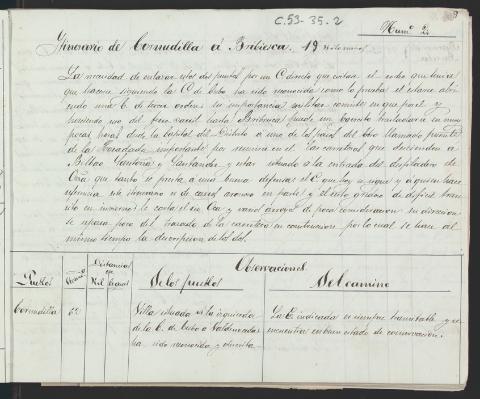 C.53-35.2
Num.º 24
Itinerario de Cornudilla á Bribiesca. 19 kilómetros
La necesidad de enlazar estos dos puntos por un C directo que evitase el rodeo que tenia
que hacerse siguiendo la C de Cubo ha sido reconocida como lo prueba el estarse abri
endo una C de tercer orden; su importancia militar consiste en que por el y
partiendo del ferro-carril hasta Bribiesca puede un Ejército trasladarse en muy
pocas horas desde la Capital del Distrito á uno de los puntos del Ebro llamado puente
de la Horadada importante por reunirse en el las carreteras que descienden á
Bilbao Santoña y Santander y estar situado á la entrada del desfiladero de
Oña que tanto se presta á una buena defensa. El C que hoy se sigue y á quien hace
referencia este itinerario es de carril arenoso en parte y el resto gredoso de dificil tran
sito en invierno; le corta el rio Oca y varios arroyos de poca consideracion su direccion
se separa poco del trazado de la carretera en construccion por lo cual se hace al
mismo tiempo la descripcion de los dos.
Pueblos
Vecinos
Distancias en
Kil Horas
Observaciones
De los pueblos
Del camino
Cornudilla
62
Villa situada á la izquierda
de la C. de Cubo á Valdenoceda
ha sido reconocida y descrita
La C indicada es siempre transitable y se
encuentra en buen estado de conservacion.